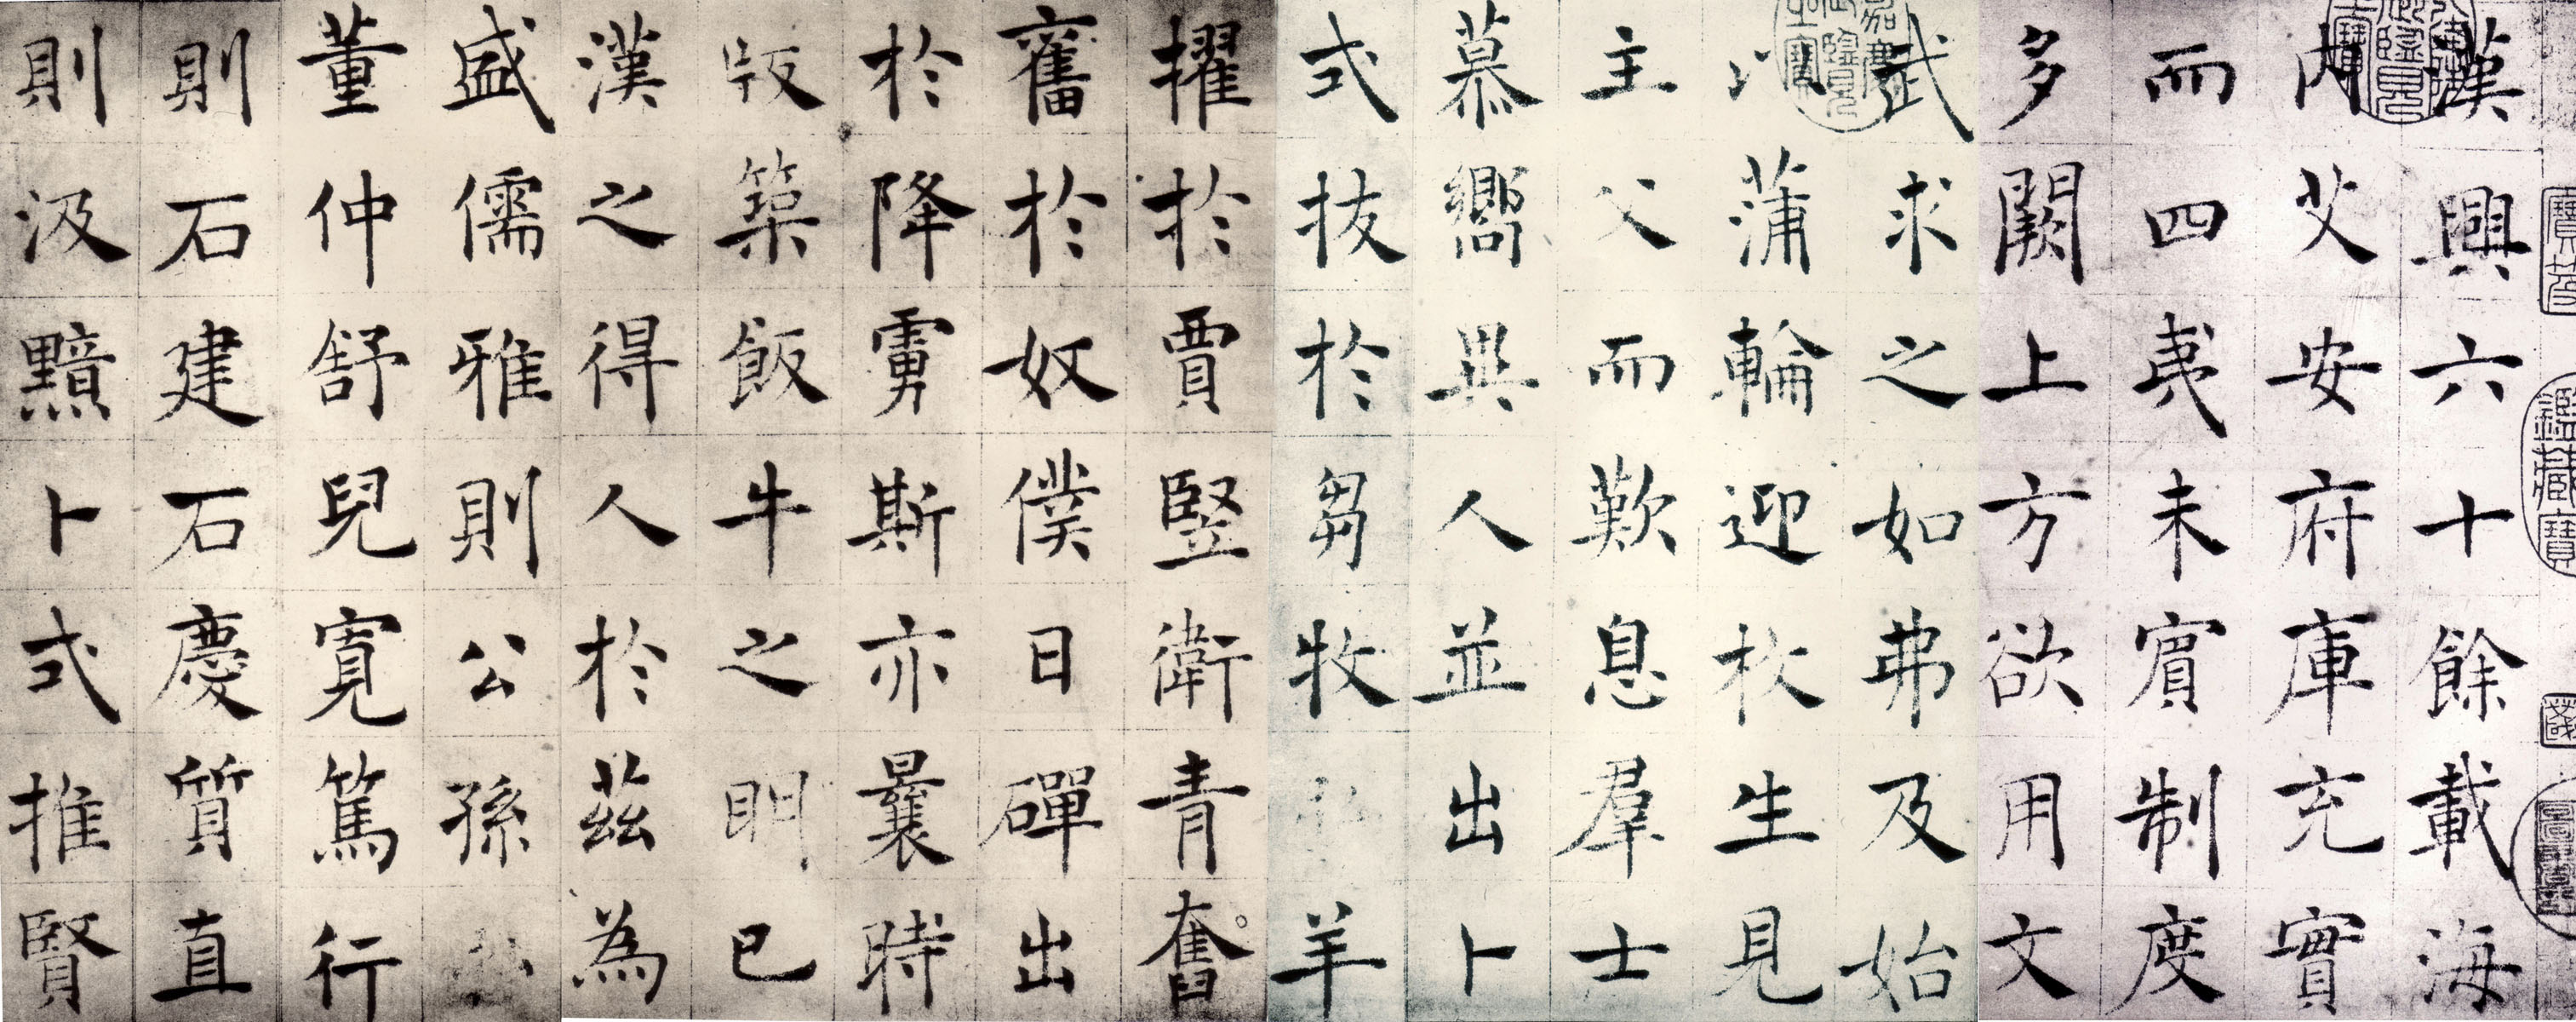 漢興六十餘載海
内艾安府庫充實
而四夷未賓制度
多闕上方欲用文
武求之如弗及始
以蒲輪迎枚生見
主父而歎息羣士
慕嚮異人並出卜
式拔於芻牧羊
擢於賈竪衛青奮
奮於奴僕日磾出
於降虜斯亦曩時
版築飯牛之明已
漢之得人於茲為
盛儒雅則公孫
董仲舒兒寬篤行
則石建石慶質直
則汲黯卜式推賢